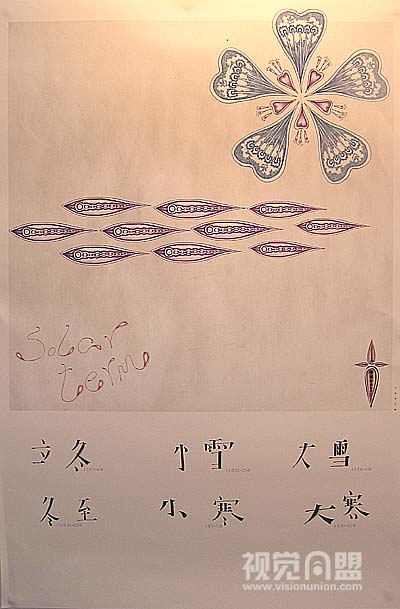 Solar
term
立冬 小雪 大雪
冬至 小寒 大寒
视觉同盟
www.visionunion.com